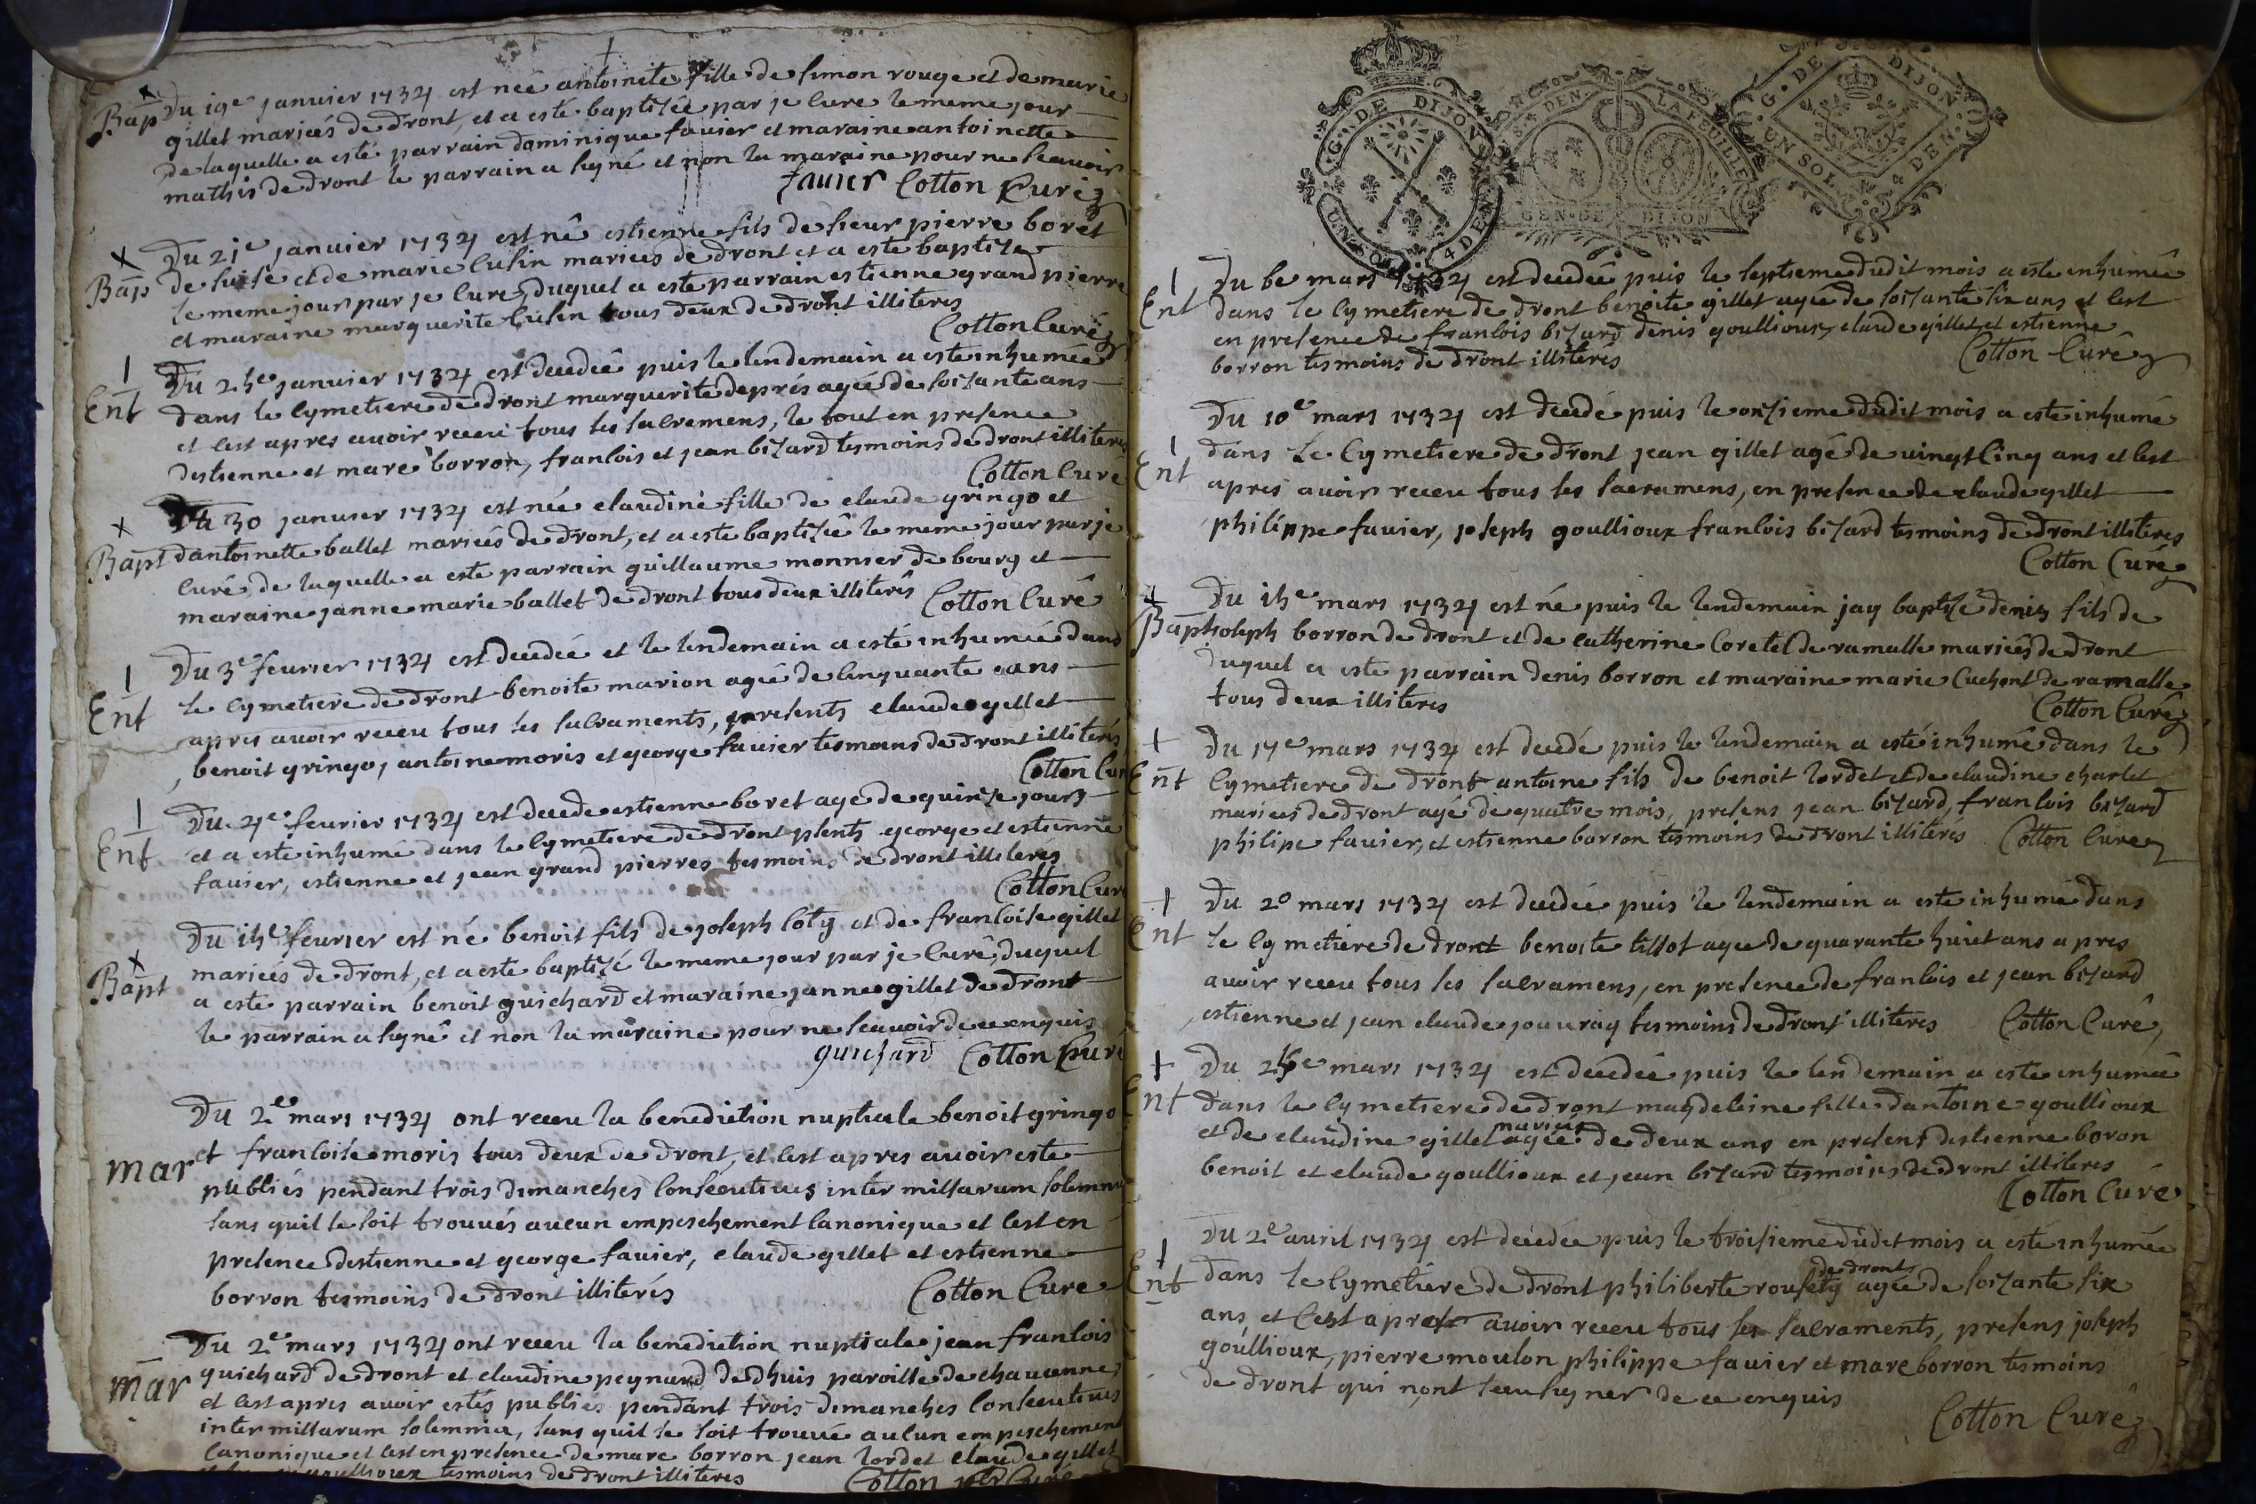 Bap Du 19e januier 1734 est neé antoinete fille de simon rouge et de marie
gillet mariées de dront, et a esté baptisée par je Curé le meme jour
de laquelle a esté parrain dominique fauier et maraine antoinette
mathis de dront le parrain a signé et non la maraine pour ne scauoir
fauier Cotton Curé
Bap Du 21e januier 1734 est né estienne fils de sieur pierre boret
de suise et de marie cusin mariees de dront et a esté baptize
le meme jour par je Curé, duquel a esté parrain estienne grand pierre
et maraine marguerite Cusin tous deux de dront illiteres
Cotton Curé
Ent Du 25e januier 1734 est decedeé puis le lendemain a esté inhumée
dans le Cymetiere de dront marguerite deprés ageé de soisante ans
et cest apres auoir receu tous les sacremens, le tout en presence
destienne et marc borron, francois et jean bisard tesmoins de dront illiteres
Cotton Curé
Bapt Du 30 januier 1734 est née claudine fille de claude gringo et
dantoinette ballet mariées de dront, et a esté baptiseé le meme jour par je
Curé, de laquelle a esté parrain guillaume monnier de bourg et
maraine janne marie ballet de dront tous deux illiterés Cotton Curé
Ent Du 3e feurier 1734 est decedée et le lendemain a esté inhumée dans
le Cymetiere de dront benoite marion agée de Cinquante ans
apres auoir receu tous les sacraments, presents claude gillet
benoit gringo, antoine moris et george fauier tesmoins de dront illiterés
Cotton Curé
Ent Du 4e feurier 1734 est decede estienne boret age de quinze jours
et a este inhumé dans le Cymetiere de dront psents george et estienne
fauier, estienne et jean grand pierres tesmoins de dront illiteres
Cotton Curé
Bapt Du 15e feurier est né benoit fils de joseph Coty et de francoise gillet
mariées de dront, et a esté baptizé le meme jour par je Curé, duquel
a esté parrain benoit guichard et maraine janne gillet de dront
le parrain a signé et non la maraine pour ne scauoir de ce enquis
guichard Cotton Curé
mar Du 2e mars 1734 ont receu la benediction nuptiale benoit gringo
et francoise moris tous deux de dront, et cest apres auoir esté
publiés pendant trois dimanches Consecutiues inter missarum solemnia
sans quil se soit trouués aucun empeschement Canonique et cest en
presence destienne et george fauier, claude gillet et estienne
borron tesmoins de dront illiterés Cotton Curé
mar Du 2e mars 1734 ont receu la benediction nuptiale jean francois
guichard de dront et claudine peynard de dhuis paroisse de chauanne
et cest apres auoir estés publiés pendant trois dimanches Consecutiues
inter missarum solemnia, sans quil se soit trouué aucun empeschement
Canonique et cest en presence de marc borron jean Cordet claude gillet
goullioux tesmoins de dront illiteres Cotton Curé
G. DE DIJON UN SOL 4 DEN.
DEN. LA FEUILLE GEN. DE DIJON
G. DE DIJON UN SOL 4 DEN.
Ent Du 6e mars 1734 est decedeé puis le septieme dudit mois a esté inhumée
dans le Cymetiere de dront benoite gillet ageé de soisante six ans et cest
en presence de francois bisard denis goullioux, claude gillet et estienne
borron tesmoins de dront illiteres Cotton Curé
Ent Du 10e mars 1734 est decedé puis le onsieme dudit mois a esté inhumé
dans le Cymetiere de dront jean gillet agé de uingt Cinq ans et cest
apres auoir receu tous les sacramens, en presence de claude gillet
philippe fauier, joseph goullioux francois bisard tesmoins de dront illiteres
Cotton Curé
Bapt Du 15e mars 1734 est né puis le lendemain jay baptisé denis fils de
joseph borron de dront et de catherine Coretel de ramasse mariées de dront
duquel a esté parrain denis borron et maraine marie Cuchent de ramasse
tous deux illiteres Cotton Curé
Ent Du 17e mars 1734 est decedé puis le lendemain a esté inhumé dans le
Cymetiere de dront antoine fils de benoit Cordet et de claudine charlet
mariees de dront agé de quatre mois, presens jean bisard, francois bisard
philipe fauier, et estienne borron tesmoins de dront illiteres Cotton Curé
Ent Du 20 mars 1734 est decedée puis le lendemain a esté inhumé dans
le Cymetiere de dront benoite tissot agee de quarante huict ans apres
auoir receu tous les sacramens, en presence de francois et jean bisard
estienne et jean claude jouuray tesmoins de dront illiteres Cotton Curé
Ent Du 25e mars 1734 est decedée puis le lendemain a esté inhumée
dans le Cymetiere de dront magdeleine fille dantoine goullioux
et de claudine gillet mariees agée de deux ans en present destienne boron
benoit et claude goullioux et jean bisard tesmoins de dront illiteres
Cotton Curé
Ent Du 2e auril 1734 est decedée puis le troisieme dudit mois a esté inhumée
dans le Cymetiere de dront philiberte rousety de dront agée de soisante six
ans, et Cest apres auoir receu tous les sacraments, presens joseph
goullioux, pierre moulon philippe fauier et marc borron tesmoins
de dront qui nont sceu signer de ce enquis
Cotton Curé